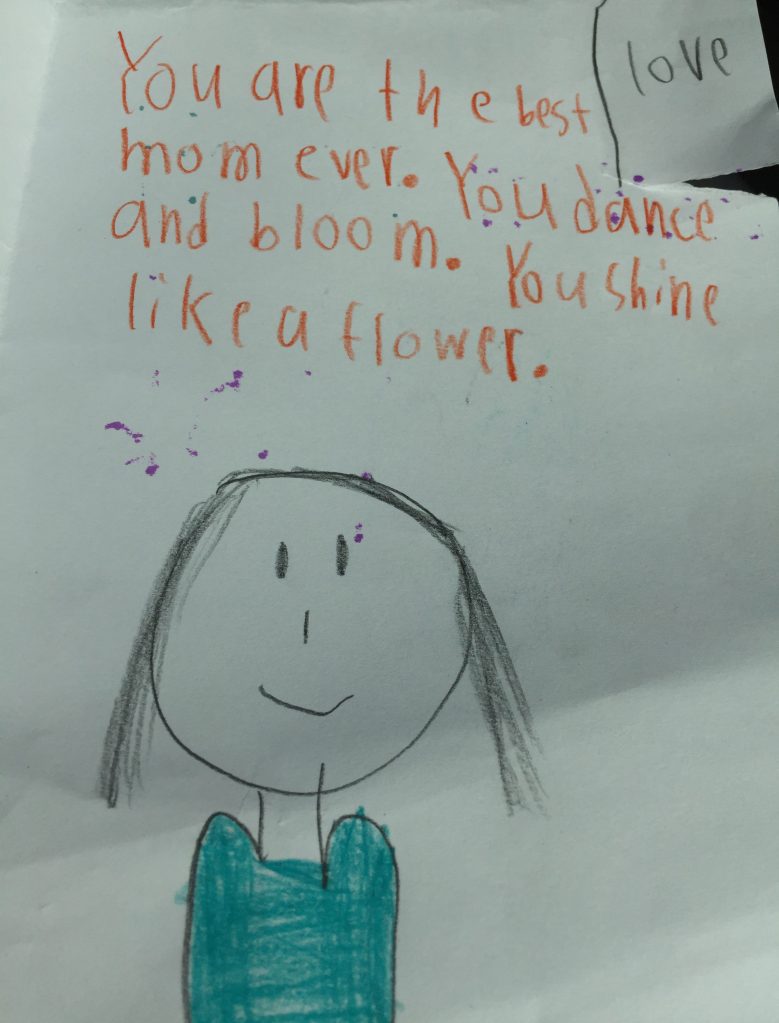 love
You are the best
mom ever. You dance
and bloom. You shine
like a flower.